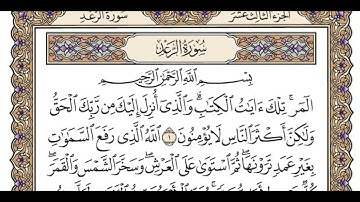 سُورَةُ الرَّعْدِ
الجُزْءُ الثَّالِثَ عَشَرَ
سُورَةُ الرَّعْدِ
بِسْمِ اللَّهِ الرَّحْمَٰنِ الرَّحِيمِ
الٓمٓرۚ تِلْكَ ءَايَٰتُ ٱلْكِتَٰبِۗ وَٱلَّذِىٓ أُنزِلَ إِلَيْكَ مِن رَّبِّكَ ٱلْحَقُّ
وَلَٰكِنَّ أَكْثَرَ ٱلنَّاسِ لَا يُؤْمِنُونَ ١ ٱللَّهُ ٱلَّذِى رَفَعَ ٱلسَّمَٰوَٰتِ
بِغَيْرِ عَمَدٍ تَرَوْنَهَاۖ ثُمَّ ٱسْتَوَىٰ عَلَى ٱلْعَرْشِۖ وَسَخَّرَ ٱلشَّمْسَ وَٱلْقَمَرَۖ